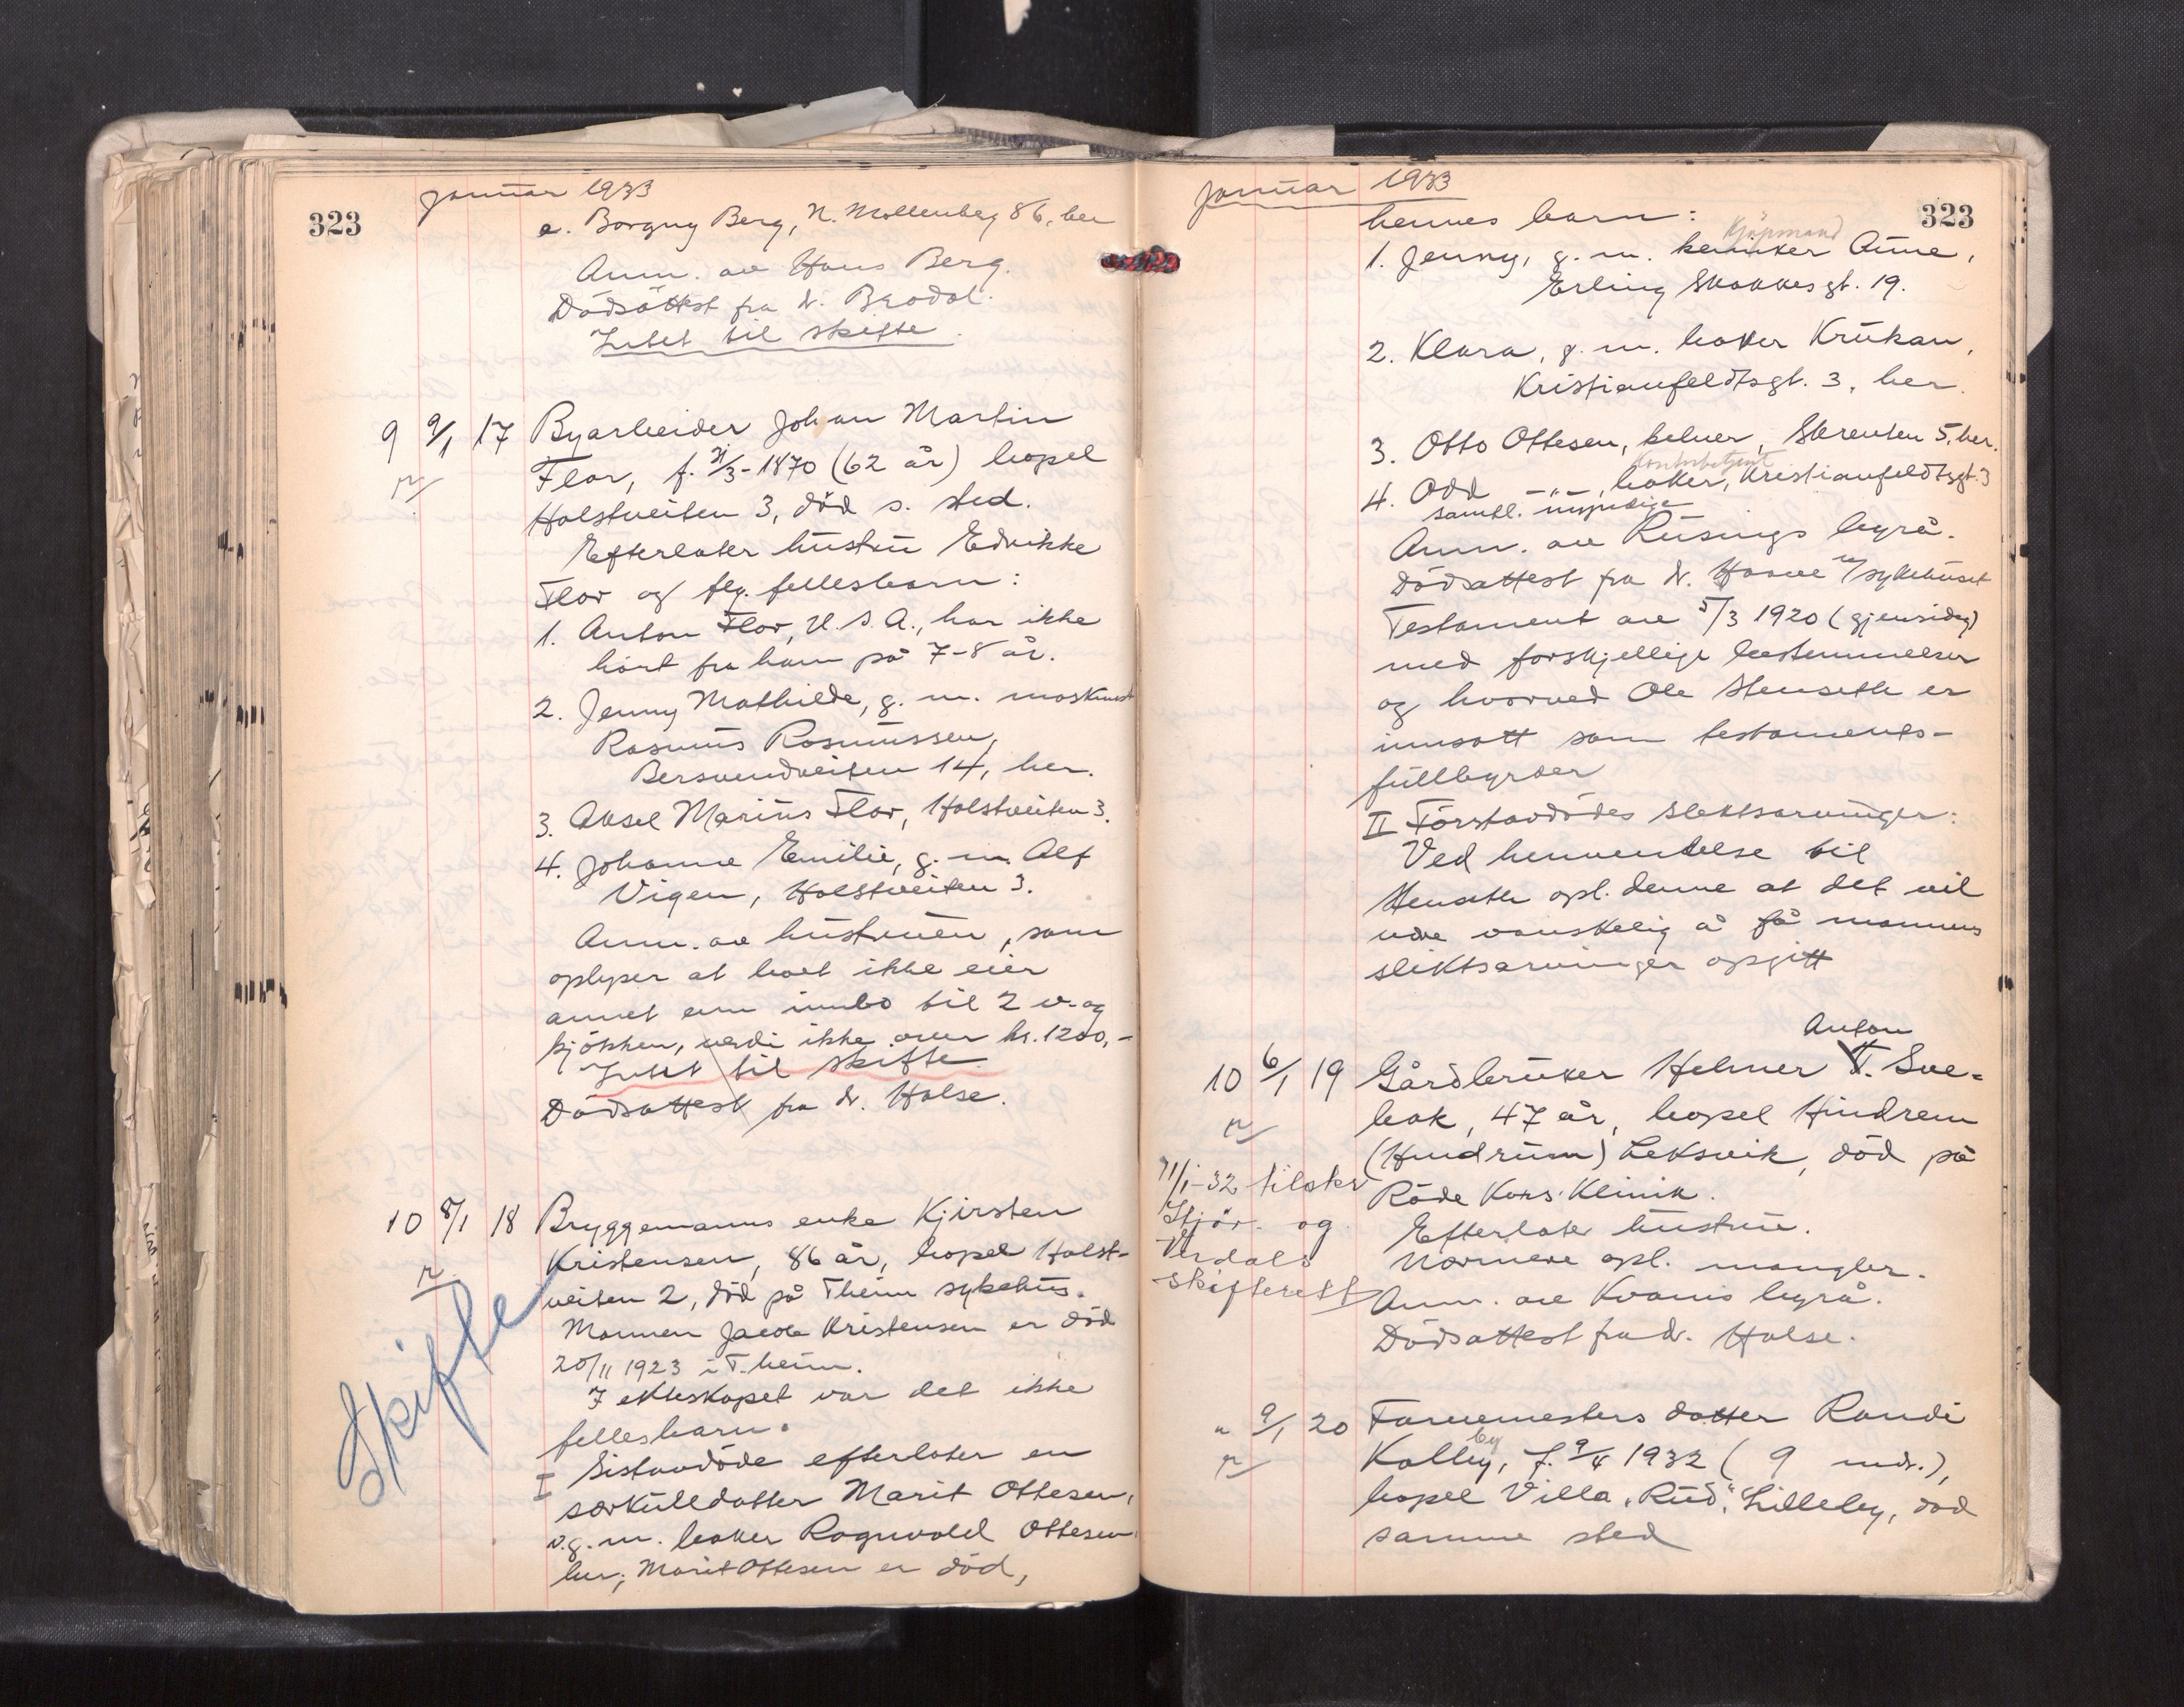 januar 1933
323
e. Borgny Berg, N. Møllenberg 86, her
Anm. av Hans Berg.
Dødsattest fra dr.
Intet til skifte.
9 9/1 17 Byarbeider Johan Martin
Flor, f. 31/3-1870 (62 år) bopel
Holstveiten 3, död s. sted.
Efterlater hustru Edvikke
Flor og flg. fellesbarn:
1. Anton Flor, U.S.A., har ikke
hört fra ham på 7-8 år.
2. Jenny Mathilde, g. m. maskinist
Rasmus Rasmussen,
Bersvendveiten 14, her.
3. Aksel Marius Flor, Holstveiten 3.
4. Johanna Emilie, g. m. Alf
Vigen, Holstveiten 3.
Anm. av hustruen, som
oplyser at boet ikke eier
annet enn innbo til 2 v. og
kjökken, verdi ikke over kr. 1200,-
Intet til skifte
Dödsattest fra dr. Halse.
10 8/1 18 Bryggemanns enke Kjirsten
Kristensen, 86 år, bopel Holst-
veiten 2, död på Theim sykehus.
Mannen Jacob Kristensen er död
20/11 1923 i T.heim.
I ekteskapet var det ikke
fellesbarn.
I Sistavdöde efterlater en
særkulldatter Marit Ottesen,
v.g.m. baker Ragnvald Ottesen
her; Marit Ottesen er död,
Skifte
januar 1933
323
hennes barn:
Kjöpmand
1. Jenny, g. m. Aune,
Erling Skakkes gt. 19.
2. Klara, g. m. baker Krukan,
Kristianfeldtsgt. 3, her.
3. Otto Ottesen, kelner, Skrenten 5, her.
Kontorbetjent
4. Odd -"-, baker, Kristianfeldtsgt. 3
samtl. myndige
Anm. av Rusings byrå.
Dödsattest fra dr. Haave v/sykehuset
Testament av 5/3 1920 (gjensidig)
med forskjellige bestemmelser
og hvorved Ole Stenseth er
innsatt som testaments-
fullbyrder
II Förstavdödes slektsarvinger:
Ved henvendelse til
Stenseth opl. denne at det vil
være vanskelig å få mannens
slektsarvinger opgitt
Anton
10 6/1 19 Gårdbruker Helmer T. Sve-
bak, 47 år, bopel Hindrem
(Hindrum) Leksvik, död på
Röde Kors Klinik.
Efterlater hustru.
Nærmere opl. mangler.
Anm. av Kvams byrå.
Dödsattest fra dr. Halse.
11/1-32 tilskr
Stjör- og
Verdals
skifterett
" 9/1 20 Farvemesters datter Randi
by
Kolby, f. 9/4 1932 (9 mdr.),
bopel Villa "Rud", Lilleby, död
samme sted